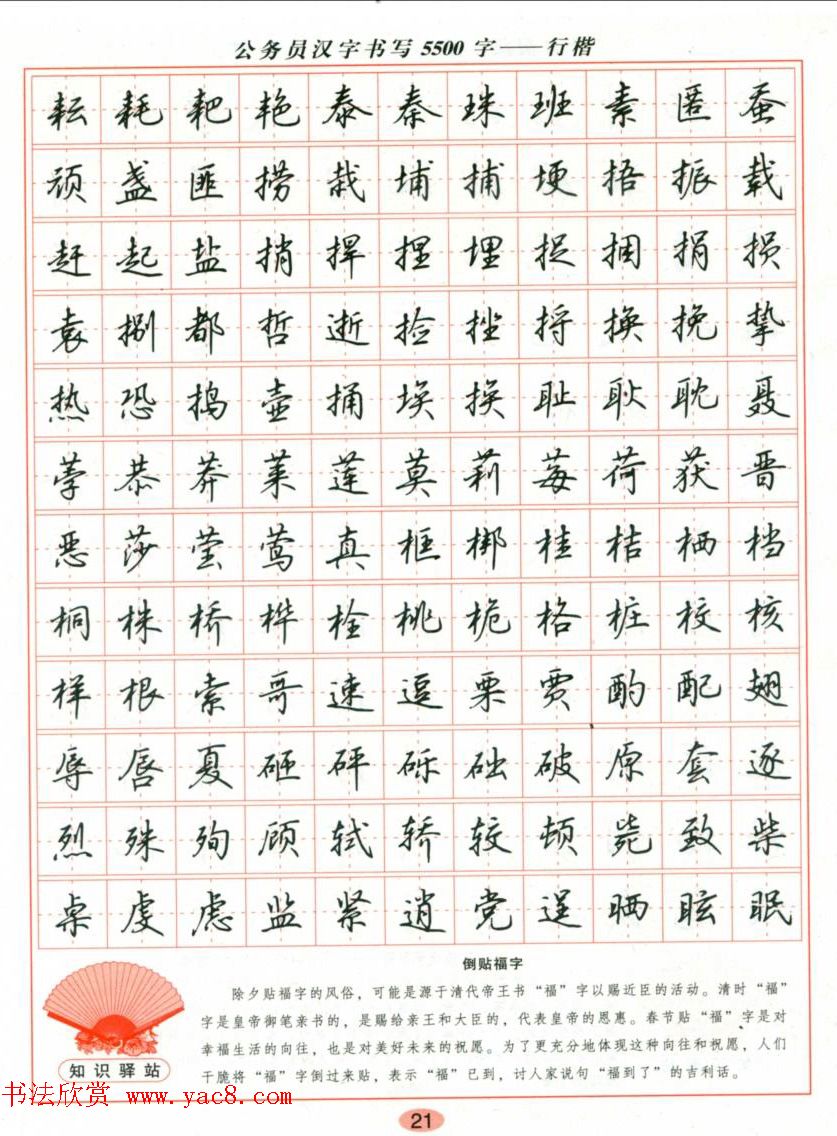 公务员汉字书写 5500 字——行楷
耘耗耙艳泰秦珠班素匿蚕
顽盏匪捞栽埔捕埂捂振载
赶起盐捎捍捏埋捉捆捐损
袁捌都哲逝捡挫捋换挽挚
热恐捣壶捅埃挨耻耿耽聂
荸恭莽莱莲莫莉莓荷获晋
恶莎莹莺真框梆桂桔栖档
桐株桥桦栓桃桅格桩校核
样根索哥速逗栗贾酌配翅
辱唇夏砸砰砾础破原套逐
烈殊殉顾轼轿较顿毙致柴
桌虔虑监紧逍党逞晒眩眠
倒贴福字
除夕贴福字的风俗，可能是源于清代帝王书“福”字以赐近臣的活动。清时“福”
字是皇帝御笔亲书的，是赐给亲王和大臣的，代表皇帝的恩惠。春节贴“福”字是对
幸福生活的向往，也是对美好未来的祝愿。为了更充分地体现这种向往和祝愿，人们
干脆将“福”字倒过来贴，表示“福”已到，讨人家说句“福到了”的吉利话。
知识驿站
书法欣赏 www.yac8.com
21